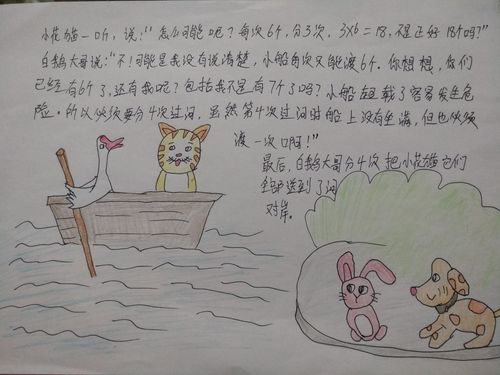 小花猫一听，说：“怎么可能呢？每次6个，分3次，3×6=18，不是正好18个吗？”
白鹅大哥说：“不！可能是我没有说清楚，小船每次只能渡6个。你想想，你们
已经有6个了，还有我呢？包括我不是有7个了吗？小船超载了容易发生危
险。所以必须要分4次过河，虽然第4次过河时船上没有坐满，但也必须
渡一次啊！”
最后，白鹅大哥分4次把小花猫它们
全部送到了河
对岸。